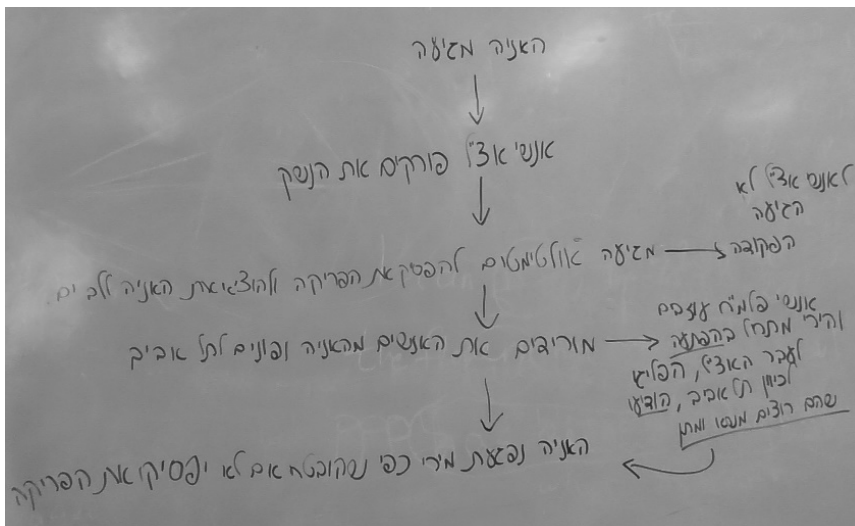 האניה מגיעה
אנשי אצ״ל פורקים את הנשק
מגיעה אולטימטום להפסיק את הפריקה ולהוציא את האניה ללב ים
לאנשי אצ״ל לא
הגיעה
הפקודה
מורידים את האנשים מהאניה ופונים לתל אביב
אנשי פלמ״ח עוזבים
והירי מתחל בהפתעה
לעבר האצ״ל, הפליגו
לכיוון תל אביב, הודיעו
שהם רוצים משא ומתן
האניה נפגעת מירי כפי שהובטח אם לא יפסיקו את הפריקה